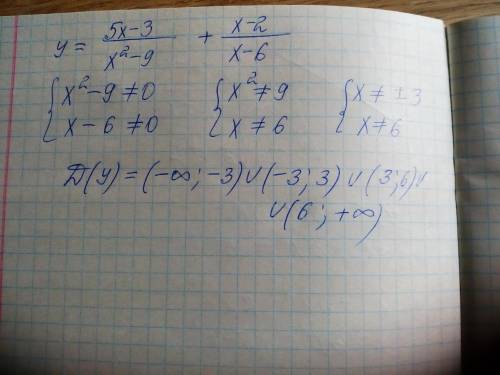 y = (5x-3)/(x²-9) + (x-2)/(x-6)
{ x²-9≠0 { x²≠9 { x≠±3
{ x-6≠0 { x≠6 { x≠6
D(y)=(-∞;-3)∪(-3;3)∪(3;6)∪
∪(6;+∞)